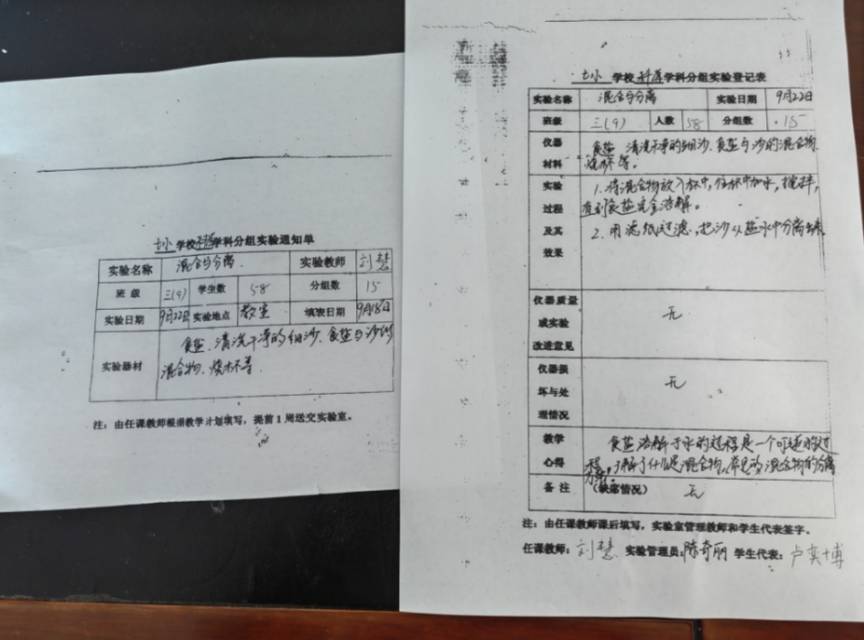 七小 学校科学学科分组实验通知单
实验名称 混合与分离 实验教师 刘慧
班 级 三(9) 学生数 58 分组数 15
实验日期 9月22日 实验地点 教室 填表日期 9月18日
实验器材 食盐、清洗干净的细沙、食盐与沙的
混合物、烧杯等
注：由任课教师根据教学计划填写，提前1周送交实验室。
七小 学校 科学学科分组实验登记表
实验名称 混合与分离 实验日期 9月22日
班级 三(9) 人数 58 分组数 15
仪器 材料 食盐 清洗干净的细沙、食盐与沙的混合物、
烧杯等。
实验 过程 及其 效果 1. 将混合物放入杯中，往杯中加水，搅拌，
直到食盐完全溶解。
2. 用滤纸过滤，把沙从盐水中分离出来
仪器质量 或实验 改进意见 无
仪器损 坏与处 理情况 无
教学 心得 食盐溶解于水的过程是一个可逆的过
程，了解了什么是混合物，常见的混合物的分离
方法。
备 注 （缺席情况） 无
注：由任课教师课后填写，实验室管理教师和学生代表签字。
任课教师：刘慧 实验管理员：陈奇丽 学生代表：卢奕博